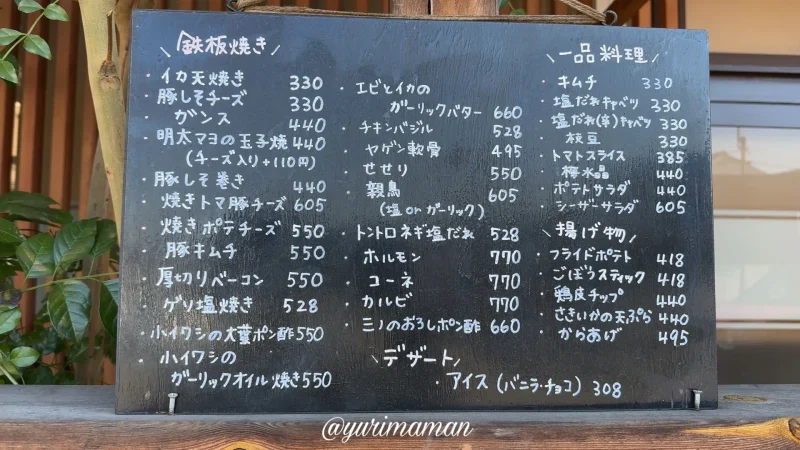 鉄板焼き
・イカ天焼き 330
・豚しそチーズ 330
・ガンス 440
明太マヨの玉子焼 440
(チーズ入り+110円)
・豚しそ巻き 440
・焼きトマ豚チーズ 605
・焼きポテチーズ 550
・豚キムチ 550
・厚切りベーコン 550
・ゲソ塩焼き 528
・小イワシの大葉ポン酢 550
・小イワシの
ガーリックオイル焼き 550
・エビとイカの
ガーリックバター 660
・チキンバジル 528
・ヤゲン軟骨 495
・せせり 550
・親鳥 605
(塩orガーリック)
・トントロネギ塩だれ 528
・ホルモン 770
・コーネ 770
・カルビ 770
・ミノのおろしポン酢 660
デザート
・アイス(バニラ・チョコ) 308
一品料理
・キムチ 330
・塩だれキャベツ 330
・塩だれ(辛)キャベツ 330
・枝豆 330
・トマトスライス 385
・梅水晶 440
・ポテトサラダ 440
・シーザーサラダ 605
揚げ物
・フライドポテト 418
・ごぼうスティック 418
・鶏皮チップ 440
・さきいかの天ぷら 440
・からあげ 495
@yurimaman